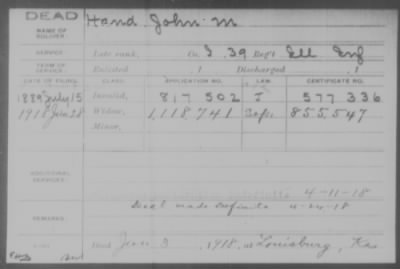 DEAD
NAME OF SOLDIER: Hand John M
SERVICE: Late rank, Co. I, 39 Reg't Ill Inf
TERM OF SERVICE: Enlisted 1 Discharged , 1
DATE OF FILING. CLASS. APPLICATION NO. LAW. CERTIFICATE NO.
1889 July 15 Invalid, 817 502 J 577 336
1918 Jan 28 Widow, 1,118,741 855,547
Minor,
ADDITIONAL SERVICES:
4-11-18
made 4-24-18
REMARKS:
Died Jan 3 1918, at Louisburg, Kas